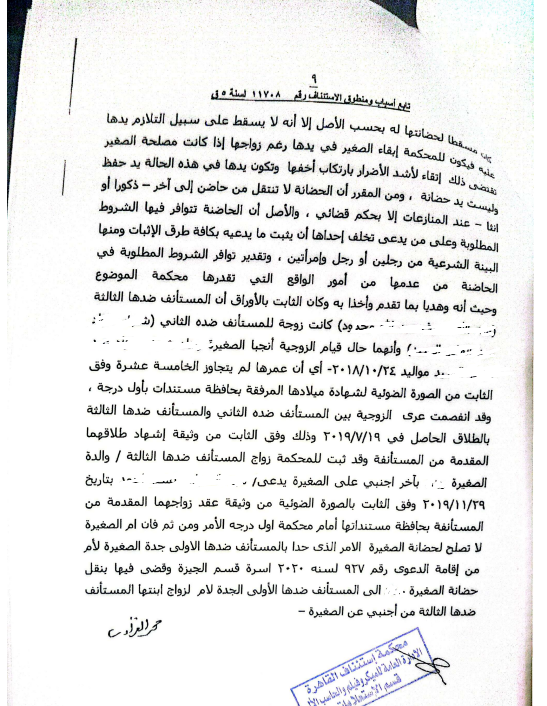 ٩
تابع أسباب ومنطوق الاستئناف رقم ١١٧٠٨ لسنة ٥ ق
كان مسقطا لحضانتها له بحسب الأصل إلا أنه لا يسقط على سبيل التلازم يدها
عليه فيكون للمحكمة إبقاء الصغير في يدها رغم زواجها إذا كانت مصلحة الصغير
تقتضى ذلك إتقاء لأشد الأضرار بارتكاب أخفها وتكون يدها في هذه الحالة يد حفظ
وليست يد حضانة ، ومن المقرر أن الحضانة لا تنتقل من حاضن إلى آخر – ذكورا أو
انثا – عند المنازعات إلا بحكم قضائي ، والأصل أن الحاضنة تتوافر فيها الشروط
المطلوبة وعلى من يدعى تخلف إحداها أن يثبت ما يدعيه بكافة طرق الإثبات ومنها
البينة الشرعية من رجلين أو رجل وإمرأتين ، وتقدير توافر الشروط المطلوبة في
الحاضنة من عدمها من أمور الواقع التي تقدرها محكمة الموضوع
وحيث أنه وهديا بما تقدم وأخذا به وكان الثابت بالأوراق أن المستأنف ضدها الثالثة
محدود) كانت زوجة للمستأنف ضده الثاني
وأنهما حال قيام الزوجية أنجبا الصغيرة
مواليد ٢٠١٨/١٠/٢٤- أي أن عمرها لم يتجاوز الخامسة عشرة وفق
الثابت من الصورة الضوئية لشهادة ميلادها المرفقة بحافظة مستندات بأول درجة ،
وقد انفصمت عرى الزوجية بين المستأنف ضده الثاني والمستأنف ضدها الثالثة
بالطلاق الحاصل في ٢٠١٩/٧/١٩ وذلك وفق الثابت من وثيقة إشهاد طلاقهما
المقدمة من المستأنفة وقد ثبت للمحكمة زواج المستأنف ضدها الثالثة / والدة
الصغيرة بآخر اجنبي على الصغيرة يدعى/ بتاريخ
٢٠١٩/١١/٢٩ وفق الثابت بالصورة الضوئية من وثيقة عقد زواجهما المقدمة من
المستأنفة بحافظة مستنداتها أمام محكمة اول درجه الأمر ومن ثم فان ام الصغيرة
لا تصلح لحضانة الصغيرة الامر الذى حدا بالمستأنف ضدها الاولى جدة الصغيرة لأم
من إقامة الدعوى رقم ٩٢٧ لسنه ٢٠٢٠ اسرة قسم الجيزة وقضى فيها بنقل
حضانة الصغيرة الى المستأنف ضدها الأولى الجدة لام لزواج ابنتها المستأنف
ضدها الثالثة من أجنبي عن الصغيرة –
محكمة إستئناف القاهرة
الإدارة العامة للميكروفيلم والحاسب الآلي